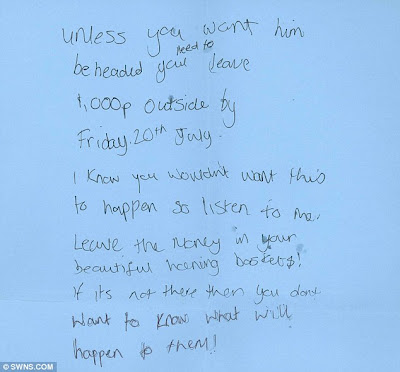 unless you want him
need to
beheaded you leave
1,000p outside by
Friday. 20th July.
I know you wouldn't want this
to happen so listen to me.
Leave the money in your
beautiful haening baskets!
If its not there then you dont
want to know what will
happen to them!!
© SWNS.COM